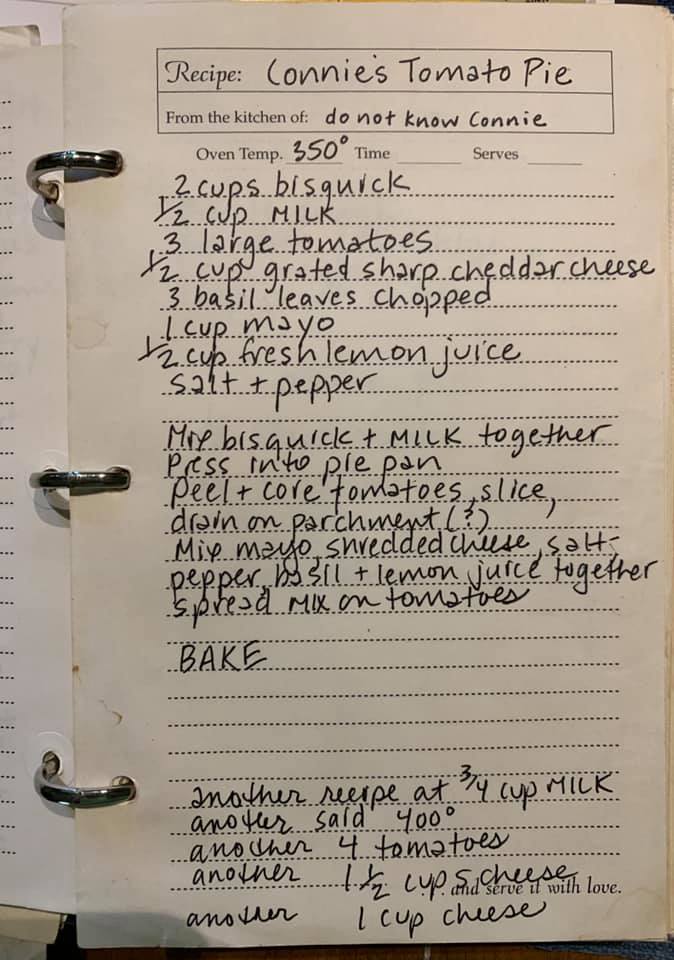 Recipe: Connie's Tomato Pie
From the kitchen of: do not know Connie
Oven Temp. 350° Time Serves
2 cups bisquick
1/2 cup MILK
3 large tomatoes
1/2 cup grated sharp cheddar cheese
3 basil leaves chopped
1 cup mayo
1/2 cup fresh lemon juice
salt + pepper
Mix bisquick + MILK together
Press into pie pan
Peel + core tomatoes, slice,
drain on parchment (?)
Mix mayo, shredded cheese, salt,
pepper, basil + lemon juice together
spread MIX on tomatoes
BAKE
another recipe at 3/4 cup MILK
another said 400°
another 4 tomatoes
another 1 1/2 cups cheese
and serve it with love.
another 1 cup cheese